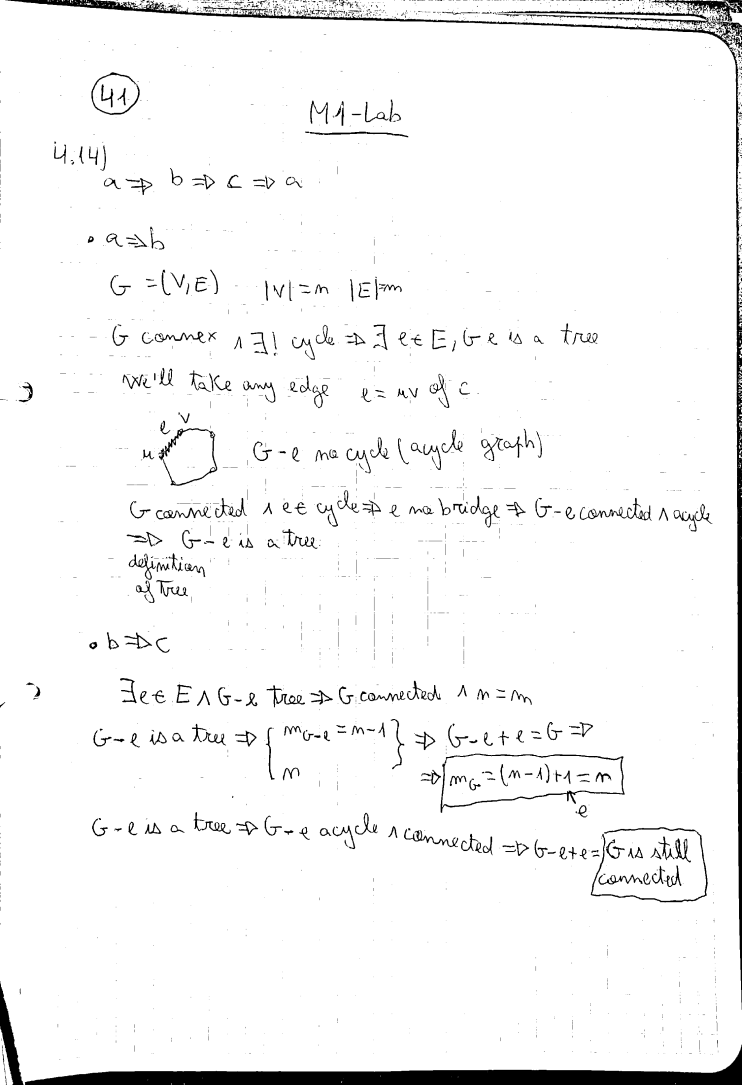 41
M1-Lab
4.14)
a ⇒ b ⇒ c ⇒ a
• a⇒b
G = (V,E) |V|=n |E|=m
G connex ∧ ∃! cycle ⇒ ∃ e∈E, G-e is a tree
We'll take any edge e = uv of C
e v
u
G-e no cycle (acycle graph)
G connected ∧ e∈ cycle ⇒ e no bridge ⇒ G-e connected ∧ acycle
⇒ G-e is a tree
definition
of Tree
• b ⇒ c
∃e∈ E ∧ G-e tree ⇒ G connected ∧ n=m
G-e is a tree ⇒ { m_{G-e} = n-1
n } ⇒ G-e+e = G ⇒
⇒ m_G = (n-1)+1 = n
e
G-e is a tree ⇒ G-e acycle ∧ connected ⇒ G-e+e = G is still
connected